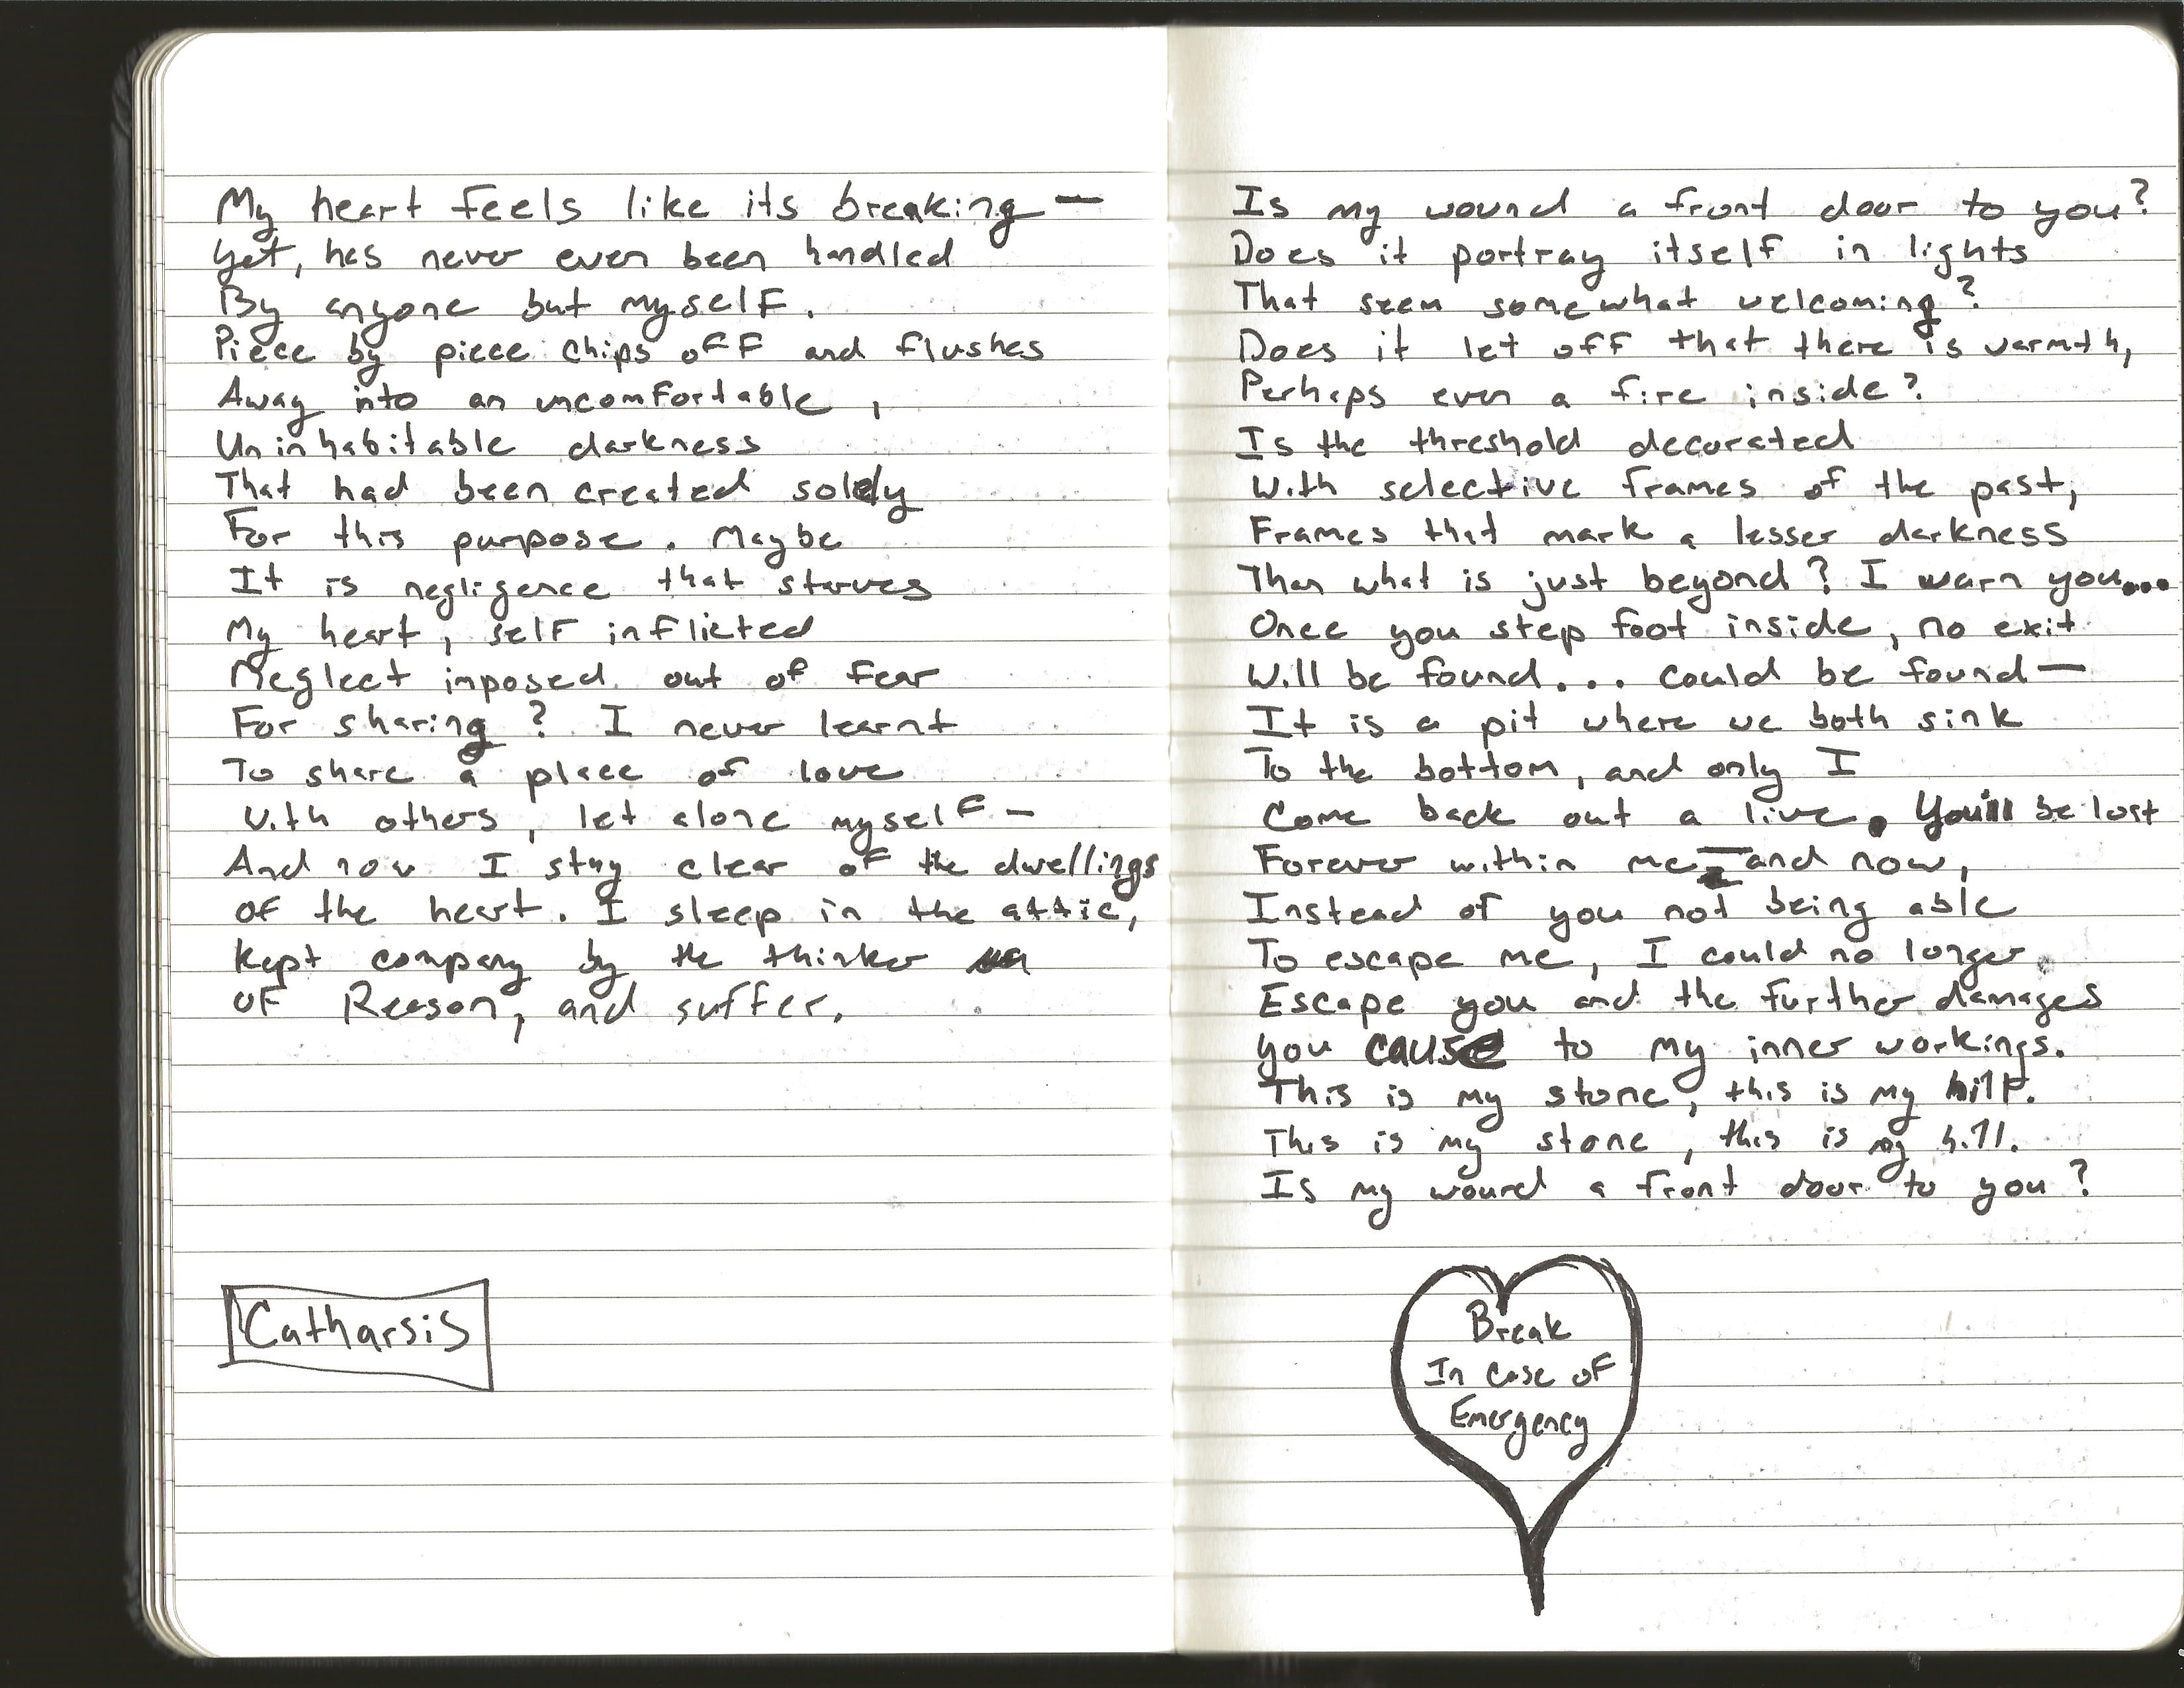 My heart feels like its breaking —
Yet, has never even been handled
By anyone but myself.
Piece by piece chips off and flushes
Away into an uncomfortable,
Uninhabitable darkness
That had been created solely
For this purpose. Maybe
It is negligence that starves
My heart, self inflicted
Neglect imposed out of fear
For sharing? I never learnt
To share a place of love
With others, let alone myself —
And now I stay clear of the dwellings
Of the heart. I sleep in the attic,
Kept company by the thinker
Of Reason, and suffer.
Catharsis
Is my wound a front door to you?
Does it portray itself in lights
That seem somewhat welcoming?
Does it let off that there is warmth,
Perhaps even a fire inside?
Is the threshold decorated
With selective frames of the past,
Frames that mark a lesser darkness
Than what is just beyond? I warn you...
Once you step foot inside, no exit
Will be found... could be found —
It is a pit where we both sink
To the bottom, and only I
Come back out a live. You'll be lost
Forever within me — and now,
Instead of you not being able
To escape me, I could no longer
Escape you and the further damages
you cause to my inner workings.
This is my stone, this is my hilt.
This is my stone, this is my hill.
Is my wound a front door to you?
Break
In Case of
Emergency